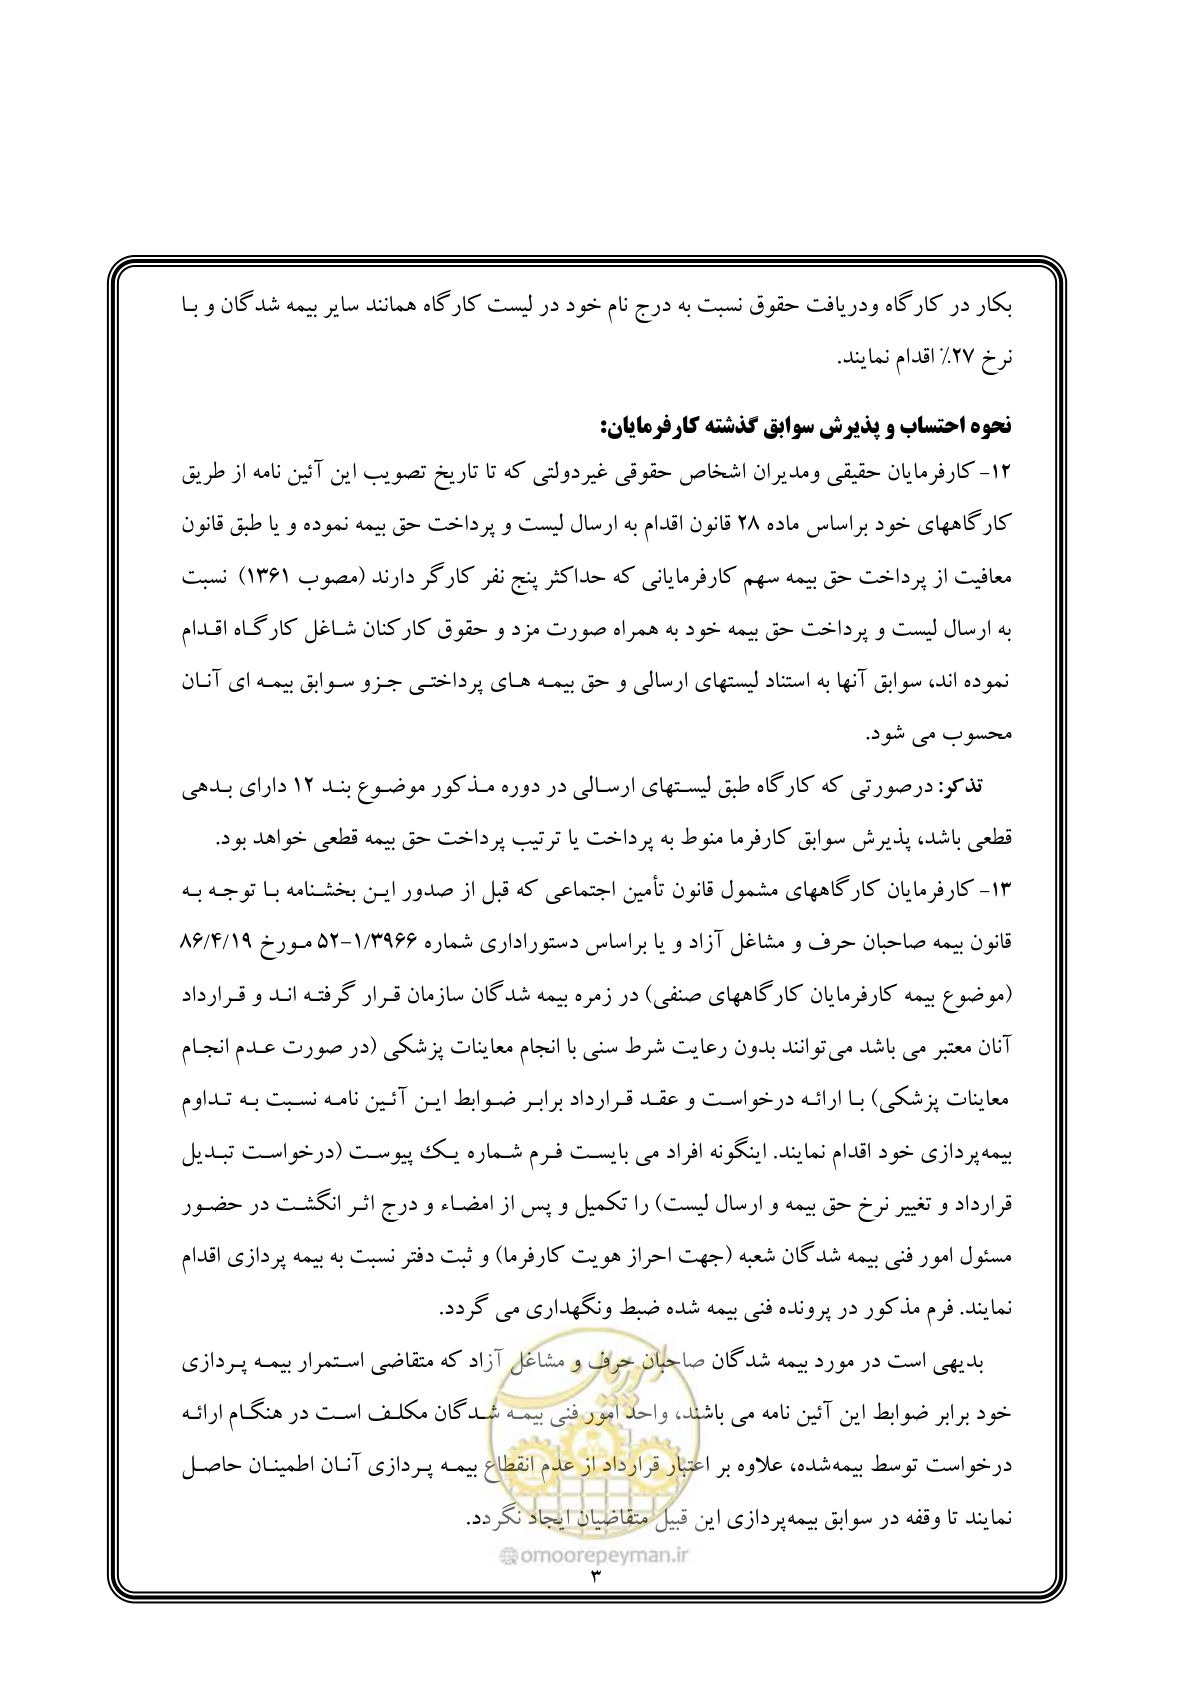 بکار در کارگاه ودریافت حقوق نسبت به درج نام خود در لیست کارگاه همانند سایر بیمه شدگان و با
نرخ ۲۷٪ اقدام نمایند.
نحوه احتساب و پذیرش سوابق گذشته کارفرمایان:
۱۲- کارفرمایان حقیقی ومدیران اشخاص حقوقی غیردولتی که تا تاریخ تصویب این آئین نامه از طریق
کارگاههای خود براساس ماده ۲۸ قانون اقدام به ارسال لیست و پرداخت حق بیمه نموده و یا طبق قانون
معافیت از پرداخت حق بیمه سهم کارفرمایانی که حداکثر پنج نفر کارگر دارند (مصوب ۱۳۶۱) نسبت
به ارسال لیست و پرداخت حق بیمه خود به همراه صورت مزد و حقوق کارکنان شاغل کارگاه اقدام
نموده اند، سوابق آنها به استناد لیستهای ارسالی و حق بیمه های پرداختی جزو سوابق بیمه ای آنان
محسوب می شود.
تذکر: درصورتی که کارگاه طبق لیستهای ارسالی در دوره مذکور موضوع بند ۱۲ دارای بدهی
قطعی باشد، پذیرش سوابق کارفرما منوط به پرداخت یا ترتیب پرداخت حق بیمه قطعی خواهد بود.
۱۳- کارفرمایان کارگاههای مشمول قانون تأمین اجتماعی که قبل از صدور این بخشنامه با توجه به
قانون بیمه صاحبان حرف و مشاغل آزاد و یا براساس دستوراداری شماره ۵۲-۱/۳۹۶۶ مورخ ۸۶/۴/۱۹
(موضوع بیمه کارفرمایان کارگاههای صنفی) در زمره بیمه شدگان سازمان قرار گرفته اند و قرارداد
آنان معتبر می باشد می‌توانند بدون رعایت شرط سنی با انجام معاینات پزشکی (در صورت عدم انجام
معاینات پزشکی) با ارائه درخواست و عقد قرارداد برابر ضوابط این آئین نامه نسبت به تداوم
بیمه‌پردازی خود اقدام نمایند. اینگونه افراد می بایست فرم شماره یک پیوست (درخواست تبدیل
قرارداد و تغییر نرخ حق بیمه و ارسال لیست) را تکمیل و پس از امضاء و درج اثر انگشت در حضور
مسئول امور فنی بیمه شدگان شعبه (جهت احراز هویت کارفرما) و ثبت دفتر نسبت به بیمه پردازی اقدام
نمایند. فرم مذکور در پرونده فنی بیمه شده ضبط ونگهداری می گردد.
بدیهی است در مورد بیمه شدگان صاحبان حرف و مشاغل آزاد که متقاضی استمرار بیمه پردازی
خود برابر ضوابط این آئین نامه می باشند، واحد امور فنی بیمه شدگان مکلف است در هنگام ارائه
درخواست توسط بیمه‌شده، علاوه بر اعتبار قرارداد از عدم انقطاع بیمه پردازی آنان اطمینان حاصل
نمایند تا وقفه در سوابق بیمه‌پردازی این قبیل متقاضیان ایجاد نگردد.
@omoorepeyman.ir
۳